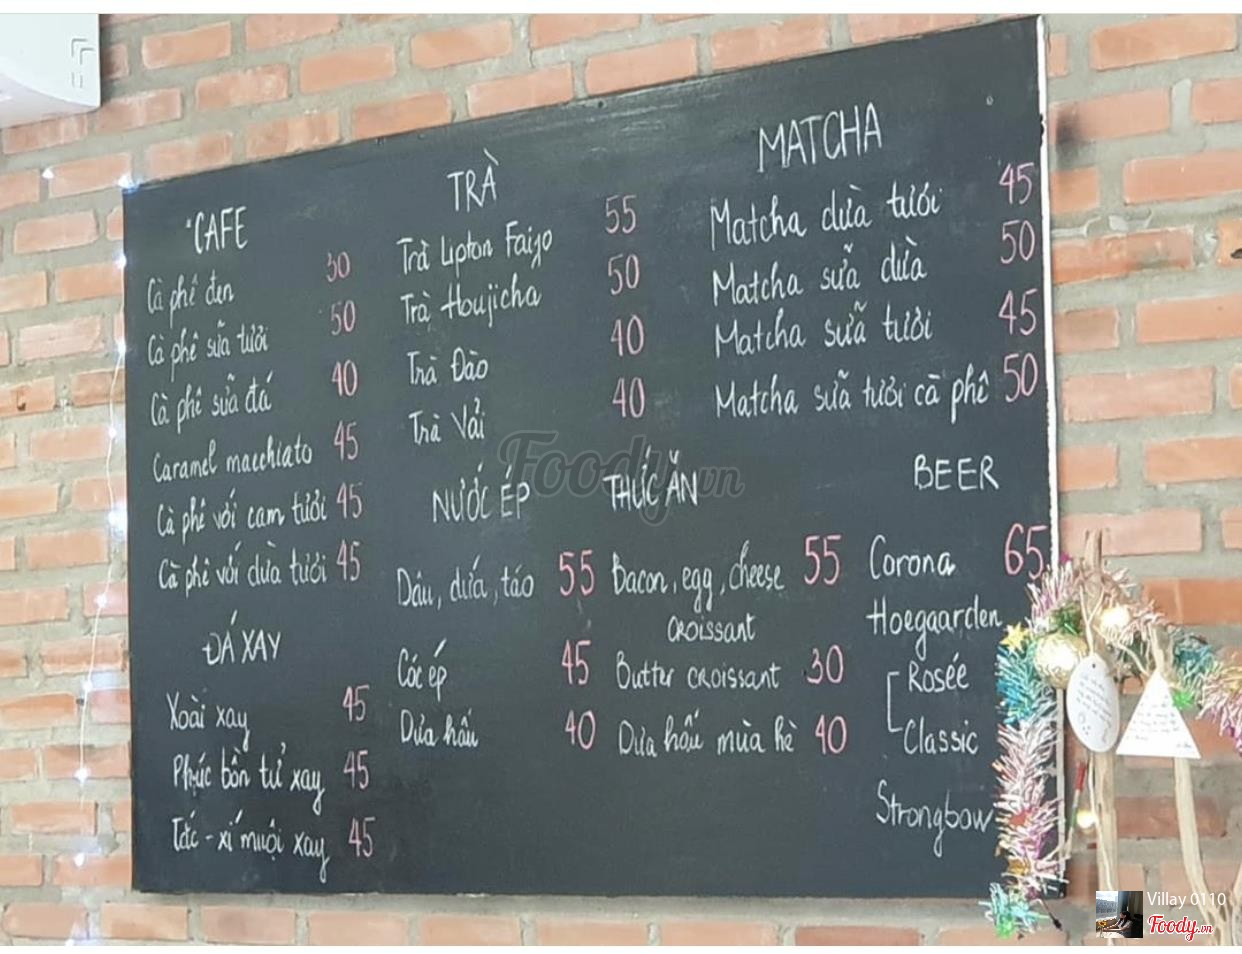 CAFE
Cà phê đen 30
Cà phê sữa tươi 50
Cà phê sữa đá 40
Caramel macchiato 45
Cà phê với cam tươi 45
Cà phê với dừa tươi 45
ĐÁ XAY
Xoài xay 45
Phúc bồn tử xay 45
Tắc - xí muội xay 45
TRÀ
Trà Lipton Faigo 55
Trà Houjicha 50
Trà Đào 40
Trà Vải 40
NƯỚC ÉP
Dâu, dứa, táo 55
Cóc ép 45
Dưa hấu 40
THỨC ĂN
Bacon, egg, cheese 55
croissant
Butter croissant 30
Dưa hấu mùa hè 40
MATCHA
Matcha dừa tươi 45
Matcha sữa dừa 50
Matcha sữa tươi 45
Matcha sữa tươi cà phê 50
BEER
Corona 65
Hoegaarden
Rosée
Classic
Strongbow
Foody.vn
Villay 0110
Foody.vn